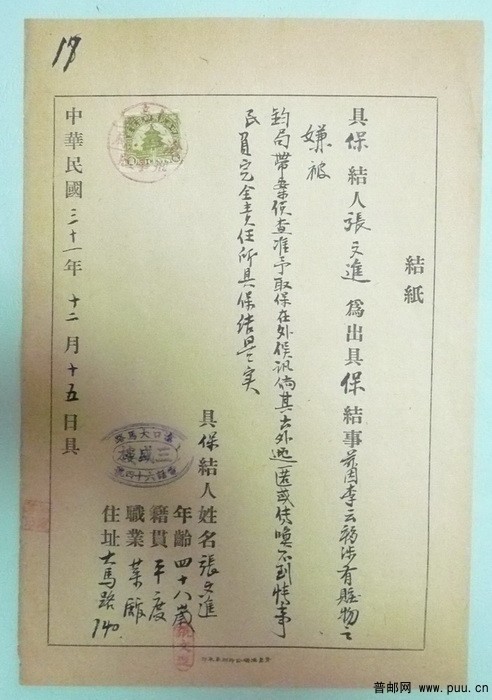 17
結紙
具保結人張文進為出具保結事茲因李云務涉有賍物之
嫌被
鈞局帶案偵查准予取保在外候訊倘其去外逃匿或傳喚不到情事
民負完全責任所具保結是实
具保結人姓名張文進
年齡四十八歲
籍貫平度
職業菜廠
住址大馬路140
中華民國三十一年十二月十五日具
普邮网 www.puu.cn